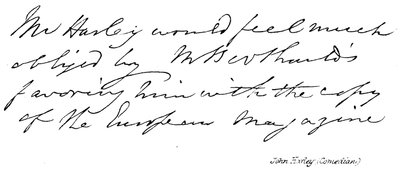 Mr Harley would feel much
obliged by Mr Bewthard's
favoring him with the copy
of the European Magazine
John Harley (Comedian)